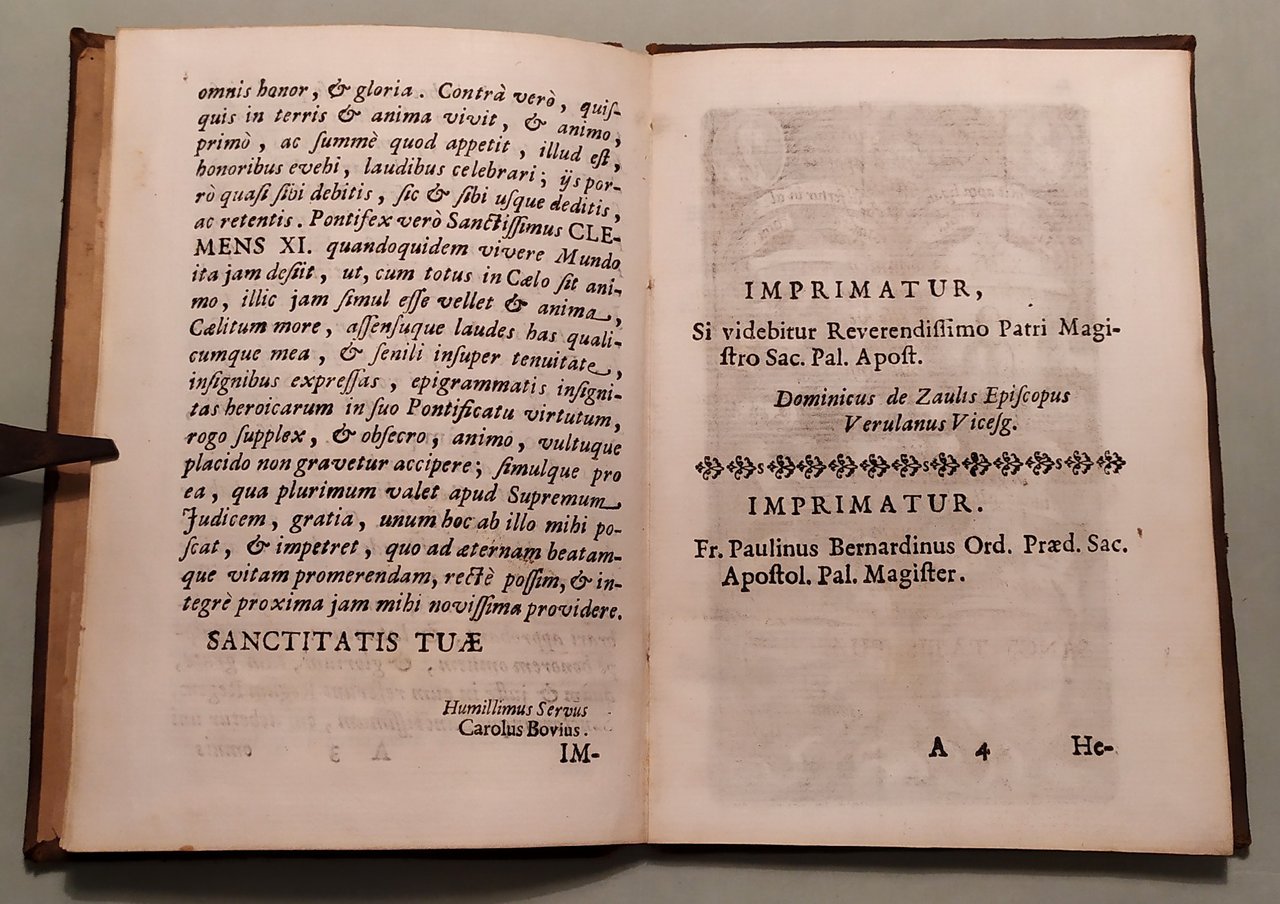 omnis honor, & gloria. Contrà verò, quiſ-
quis in terris & anima vivit, & animo,
primò, ac ſummè quod appetit, illud eſt,
honoribus evehi, laudibus celebrari; ijs por-
rò quaſi ſibi debitis, ſic & ſibi uſque deditis,
ac retentis. Pontifex verò Sanctiſſimus CLE-
MENS XI. quandoquidem vivere Mundo
ita jam deſiit, ut, cum totus in Cælo ſit ani-
mo, illic jam ſimul eſſe vellet & anima,
Cælitum more, aſſenſuque laudes has quali-
cumque mea, & ſenili inſuper tenuitate,
inſignibus expreſſas, epigrammatis inſigni-
tas heroicarum in ſuo Pontificatu virtutum,
rogo ſupplex, & obſecro, animo, vultuque
placido non gravetur accipere; ſimulque pro
ea, qua plurimum valet apud Supremum
Judicem, gratia, unum hoc ab illo mihi po-
ſcat, & impetret, quo ad æternam beatam-
que vitam promerendam, rectè poſſim, & in-
tegrè proxima jam mihi noviſſima providere.
SANCTITATIS TUÆ
Humillimus Servus
Carolus Bovius.
IM-
IMPRIMATUR,
Si videbitur Reverendiſſimo Patri Magi-
ſtro Sac. Pal. Apoſt.
Dominicus de Zaulis Epiſcopus
Verulanus Viceſg.
IMPRIMATUR.
Fr. Paulinus Bernardinus Ord. Præd. Sac.
Apoſtol. Pal. Magiſter.
A 4 He-